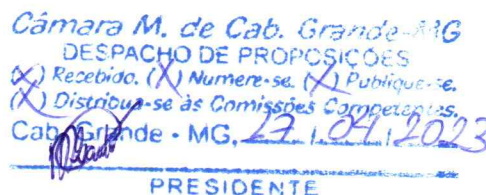 Câmara M. de Cab. Grande-MG
DESPACHO DE PROPOSIÇÕES
(X) Recebido. (X) Numere-se. (X) Publique-se.
(X) Distribua-se às Comissões Competentes.
Cab. Grande - MG, 27 / 04 / 2023
PRESIDENTE